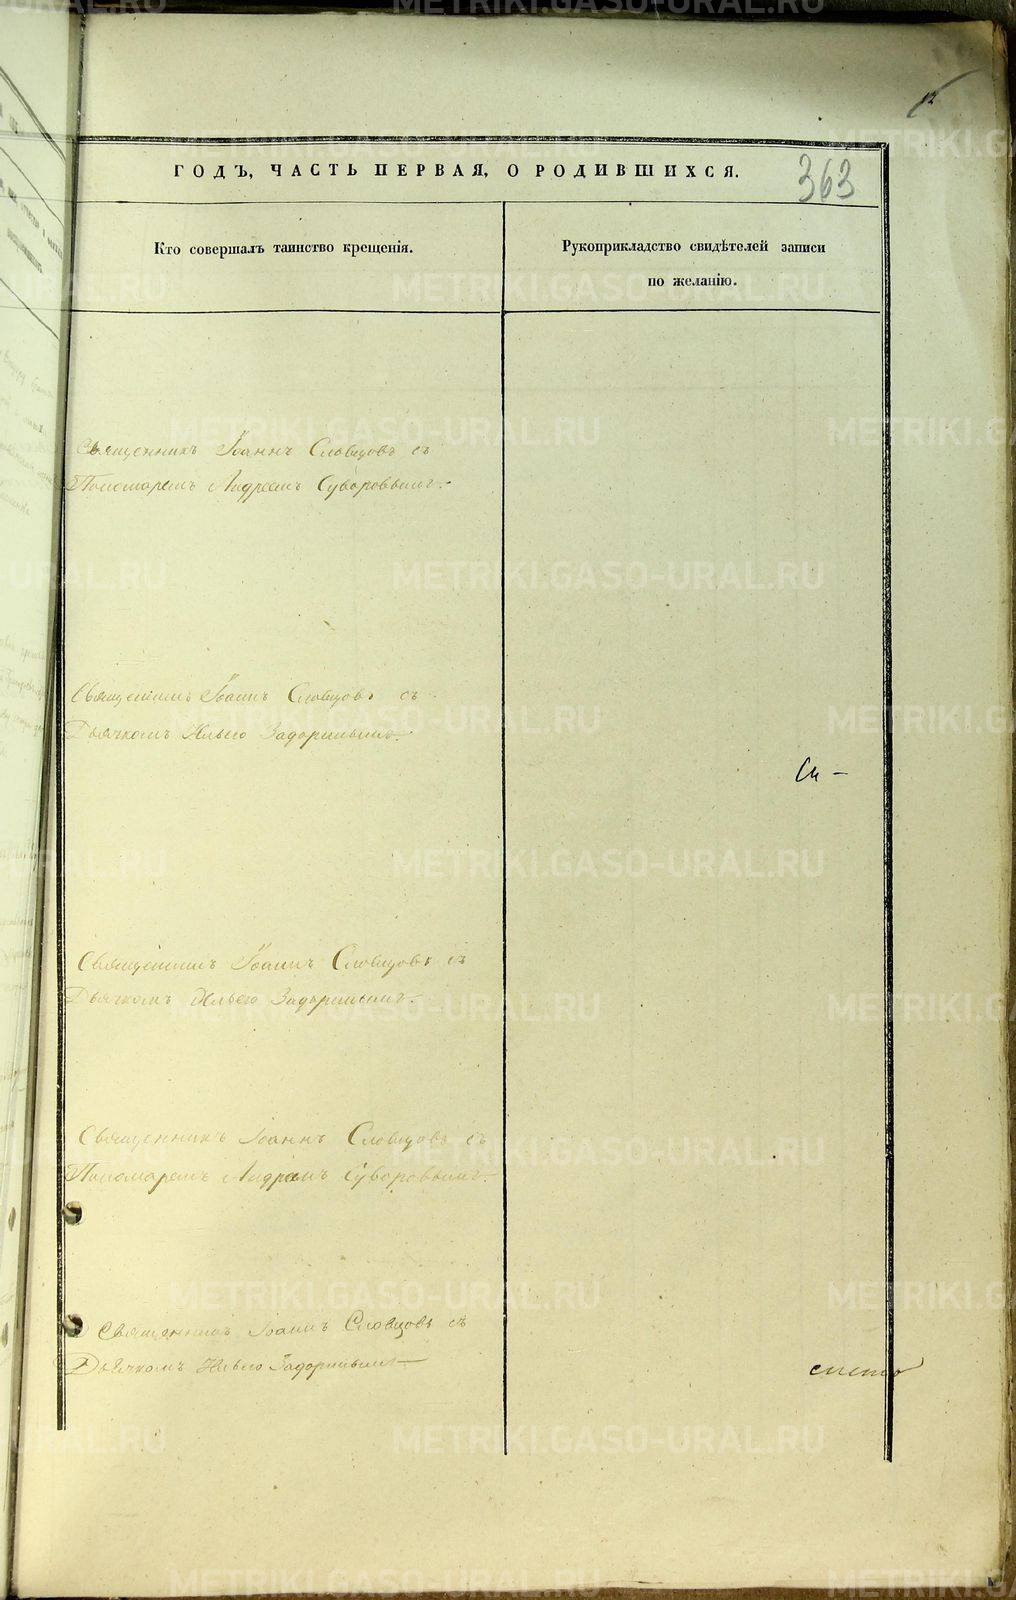 12
ГОДЪ, ЧАСТЬ ПЕРВАЯ, О РОДИВШИХСЯ.
363
Кто совершалъ таинство крещенія.
Рукоприкладство свидѣтелей записи
по желанію.
Священникъ Іоаннъ Словцовъ съ
Пономаремъ Андреемъ Суворовымъ.
Священникъ Іоаннъ Словцовъ съ
Дьячкомъ Ильею Задоринымъ.
Священникъ Іоаннъ Словцовъ съ
Дьячкомъ Ильею Задоринымъ.
Священникъ Іоаннъ Словцовъ съ
Пономаремъ Андреемъ Суворовымъ.
Священникъ Іоаннъ Словцовъ съ
Дьячкомъ Ильею Задоринымъ
METRIKI.GASO-URAL.RU